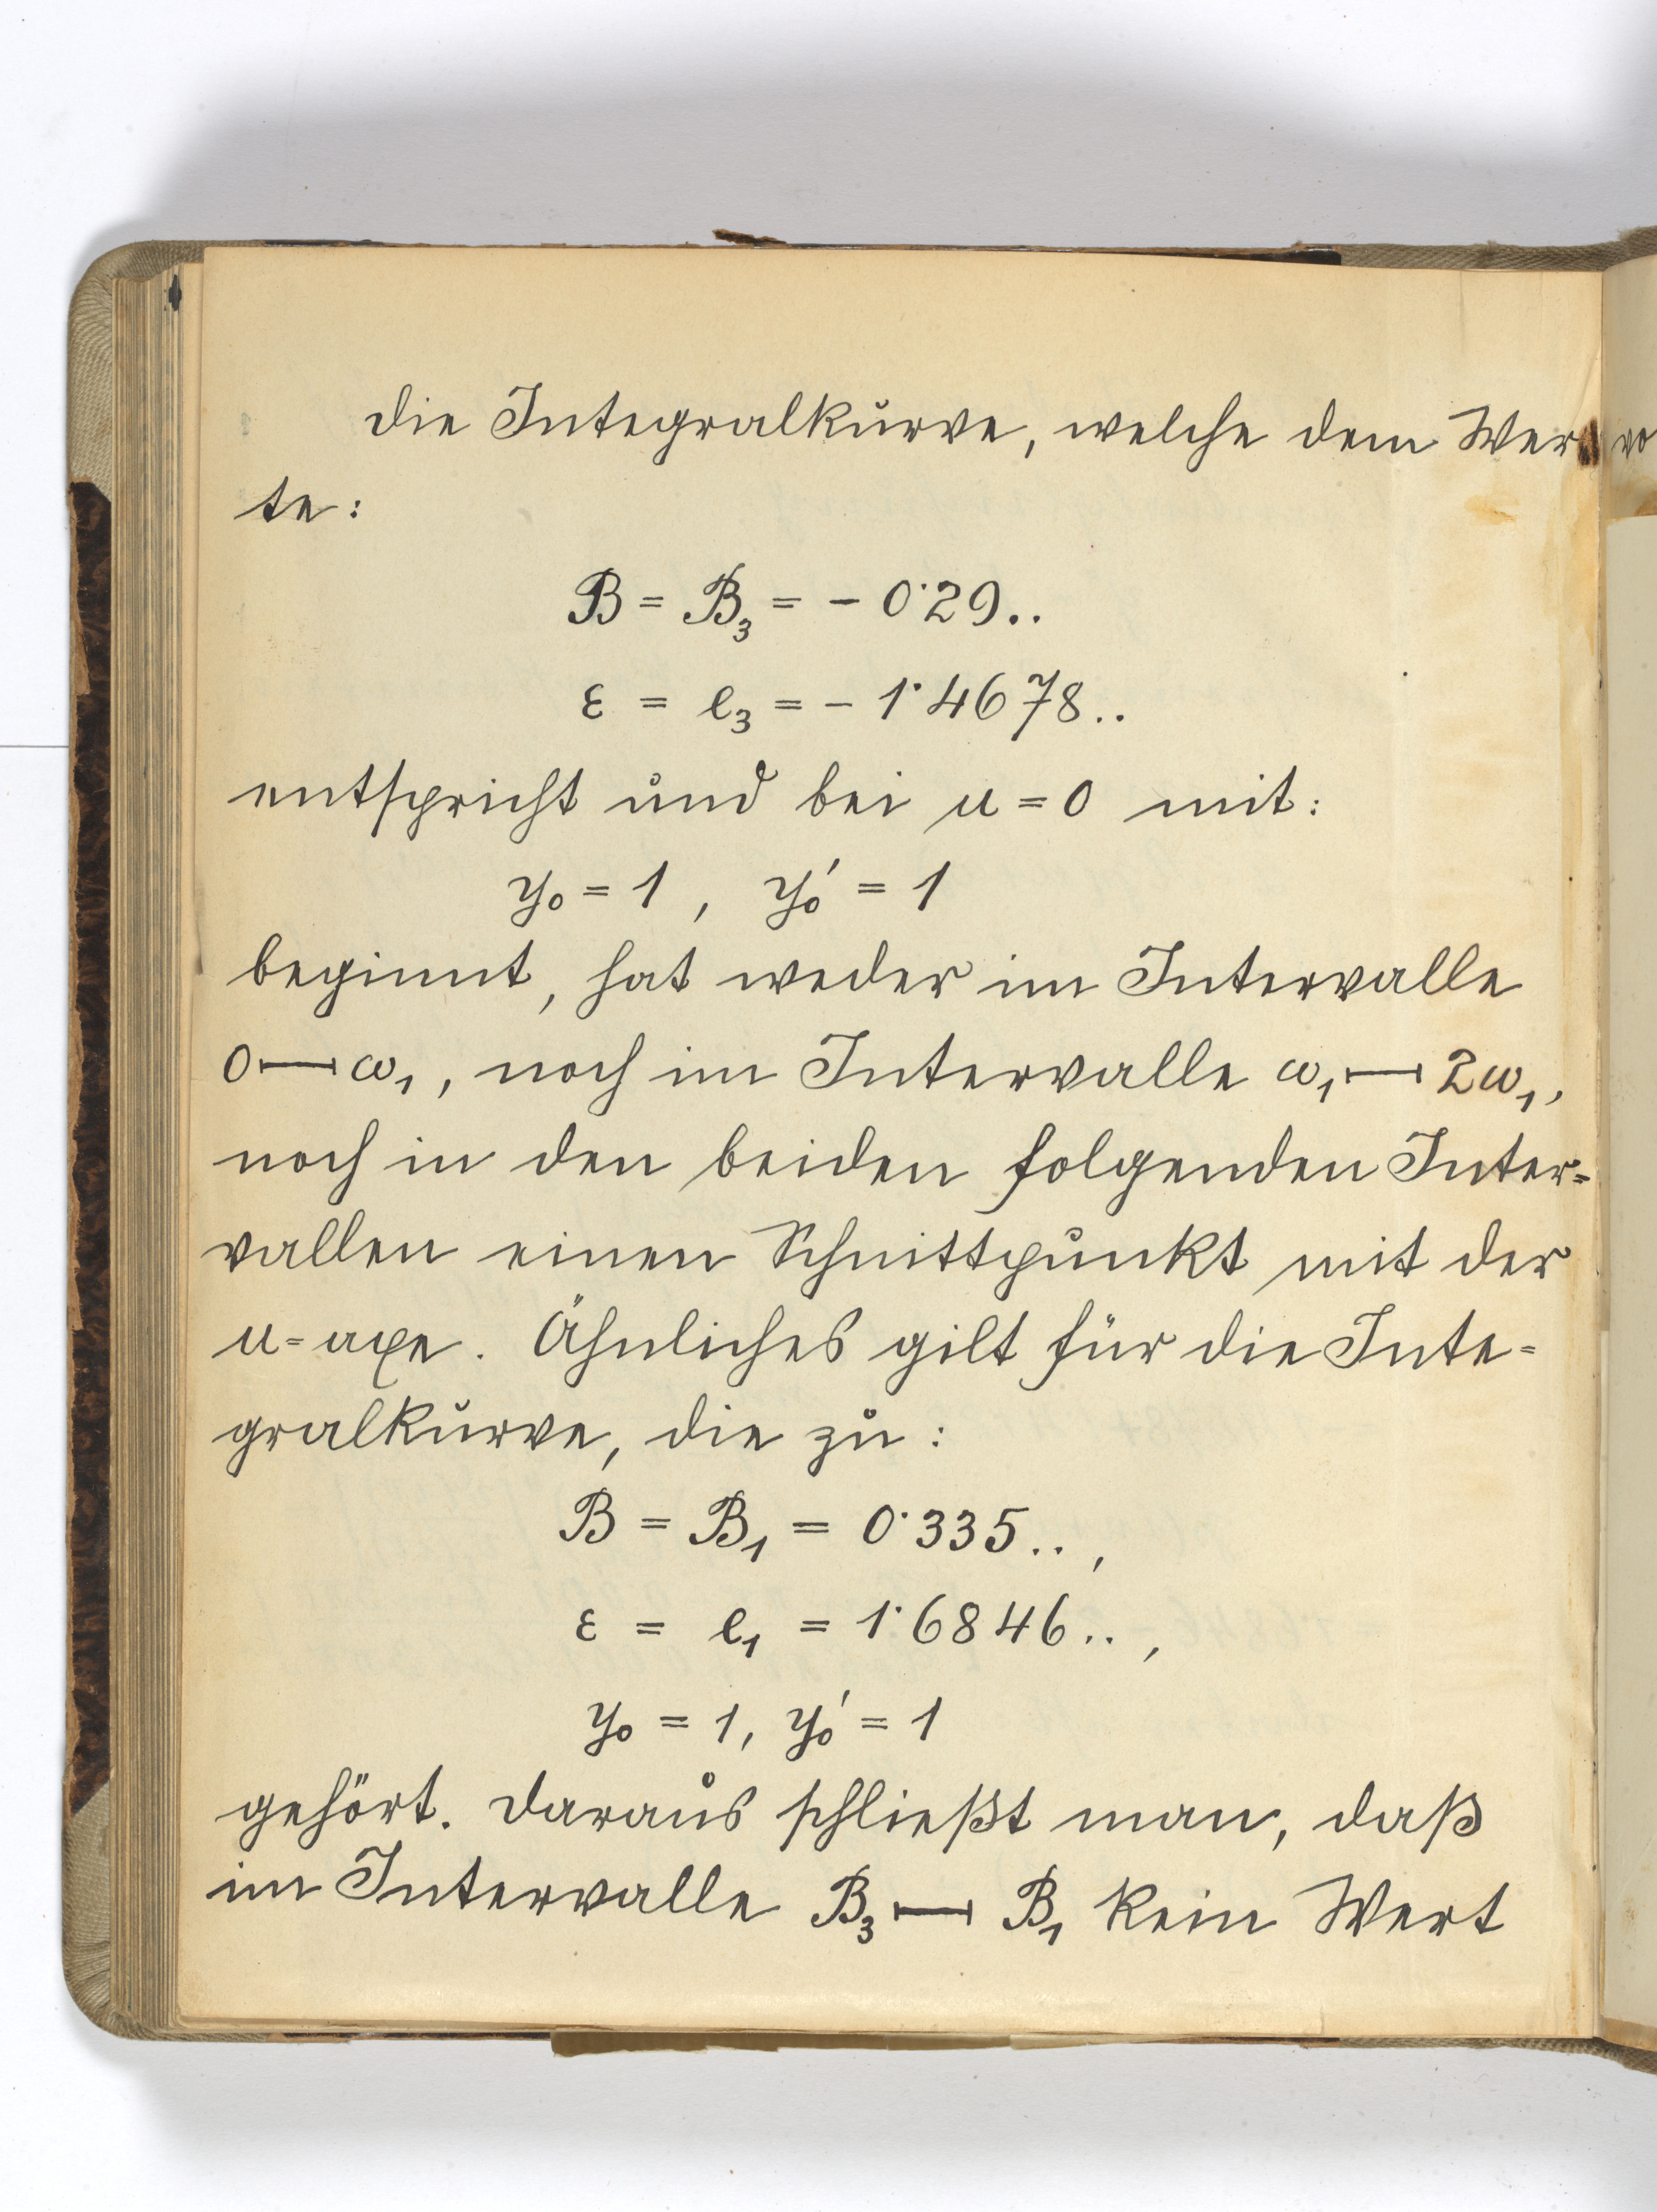 Die Integralkurve, welche dem Wer
te:
B = B₃ = - 0˙29..
ε = e₃ = - 1˙4678..
entspricht und bei u = 0 mit:
y₀ = 1 , y₀′ = 1
beginnt, hat weder im Intervalle
0⊢⊣ω₁, noch im Intervalle ω₁⊢⊣2ω₁,
noch in den beiden folgenden Inter=
vallen einen Schnittpunkt mit der
u=axe. Ähnliches gilt für die Inte=
gralkurve, die zu:
B = B₁ = 0˙335.. ,
ε = e₁ = 1˙6846.. ,
y₀ = 1, y₀′ = 1
gehört. Daraus schließt man, daß
im Intervalle B₃⊢⊣B₁ kein Wert